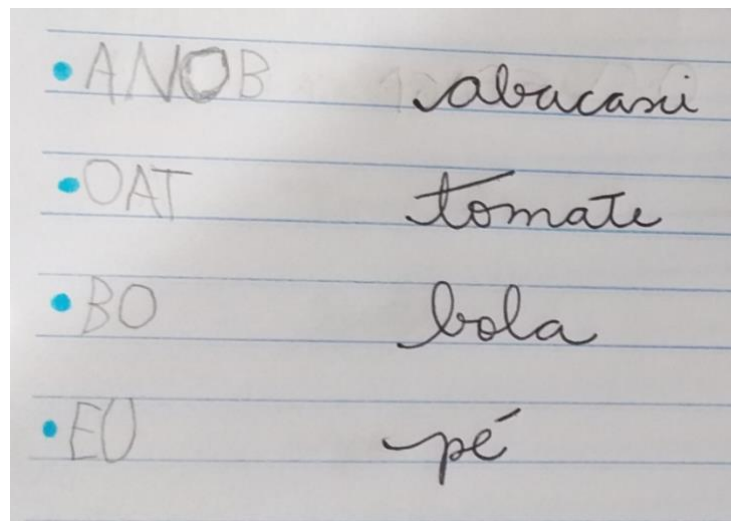 ANOB abacaxi
OAT tomate
BO bola
EU pé